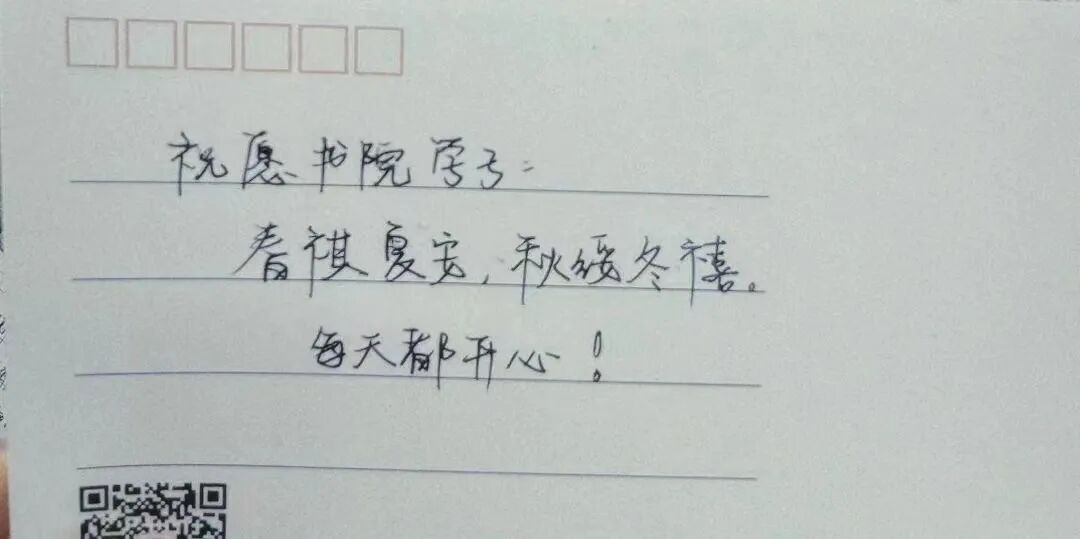 祝愿书院学子：
春祺夏安，秋绥冬禧。
每天都开心！